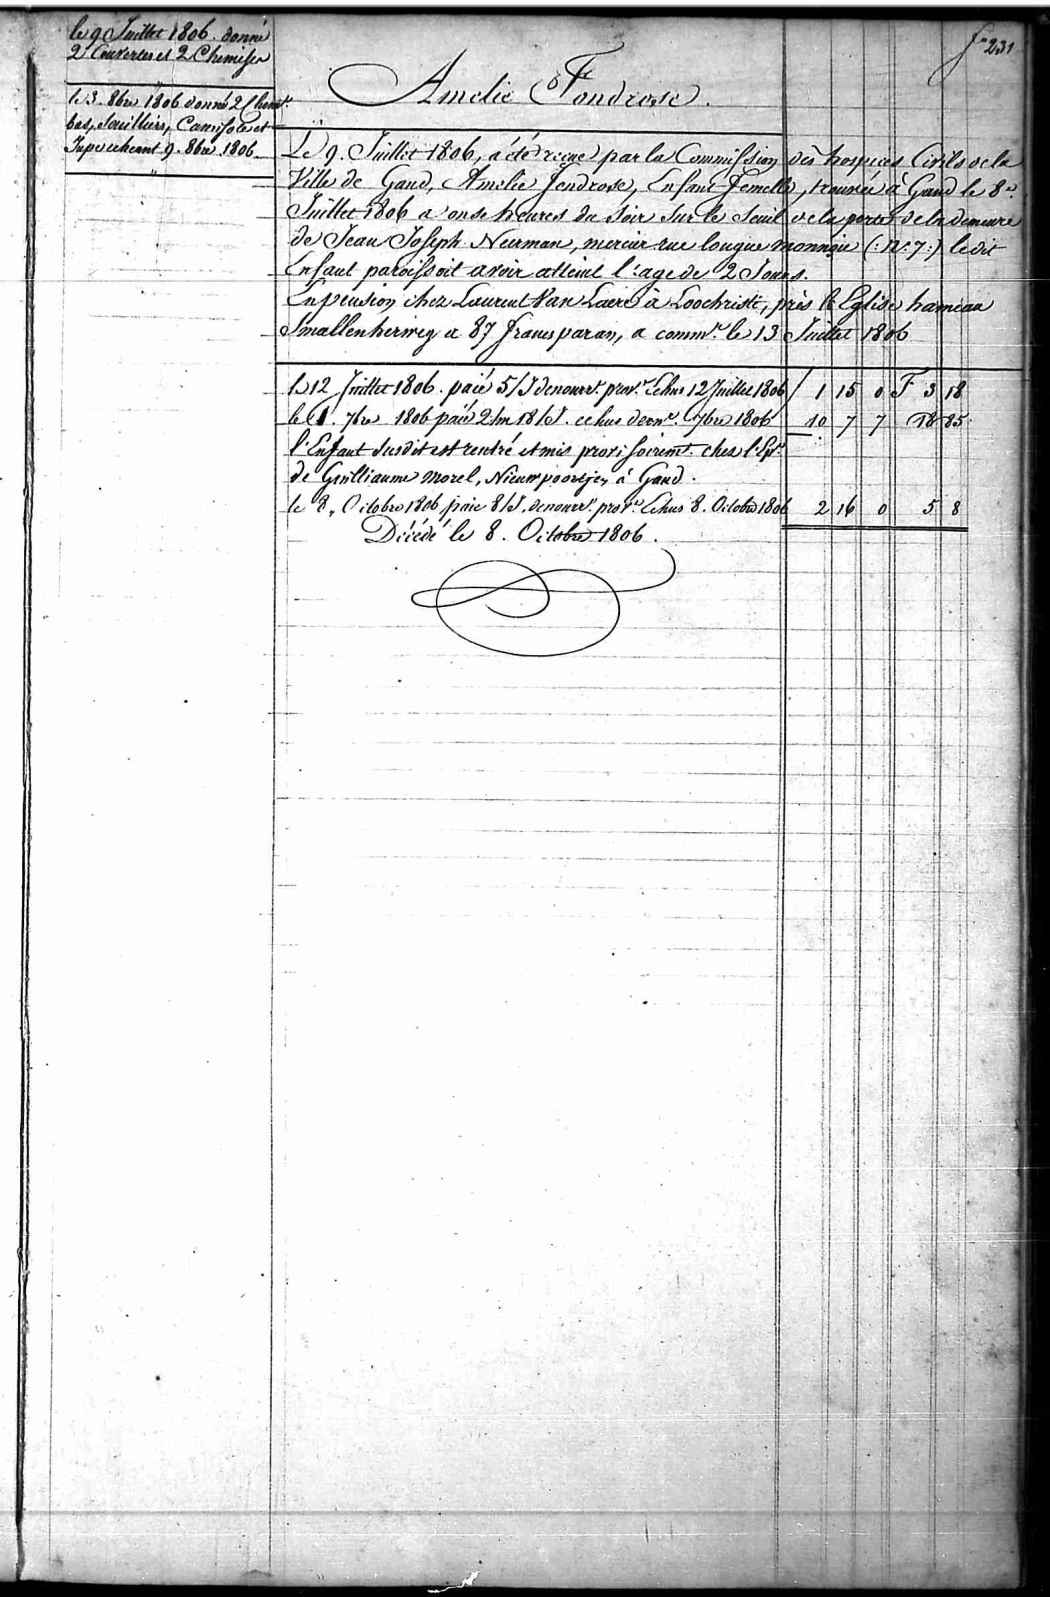 fo 231
le 9 Juillet 1806. donné
2 Couvertes et 2 Chemises
le 3. 8bre 1806 donné 2 Chemis.
bas, Souilliers, Camisole et
Jupe echeant 9. 8bre 1806
Amelie Fondrose.
Le 9. Juillet 1806, a été reçue par la Commission des hospices Civils de la
Ville de Gand, Amelie Fendrose, Enfant Femelle, trouvée à Gand le 8e
Juillet 1806 a onse heures du Soir Sur le Seuil de la porte de la demeure
de Jean Joseph Neurman, mercier rue longue monnoie (: No. 7 :) le dit
Enfant paroissoit avoir atteint l'age de 2 Jours.
En pension chez Laurent Van Laere à Loochristi, près l'Eglise hameau
Smallenherweg a 87 francs par an, a commcé le 13 Juillet 1806
le 12 Juillet 1806. paié 5/J de nourre. provre. Echus 12 Juillet 1806 1 15 0 F 3 18
le 1. 7bre 1806 paié 2/m 18/J. echus 7bre 1806 10 7 7 18 85
l'Enfant Susdit est rentré et mis provisoiremt. chez l'Ep.
de Guilliaume Morel, Nieuwpoortje, à Gand.
le 8, Octobre 1806 paié 8/J. de nourre. provre. Echus 8. Octobre 1806 2 16 0 5 8
Décédé le 8. Octobre 1806.